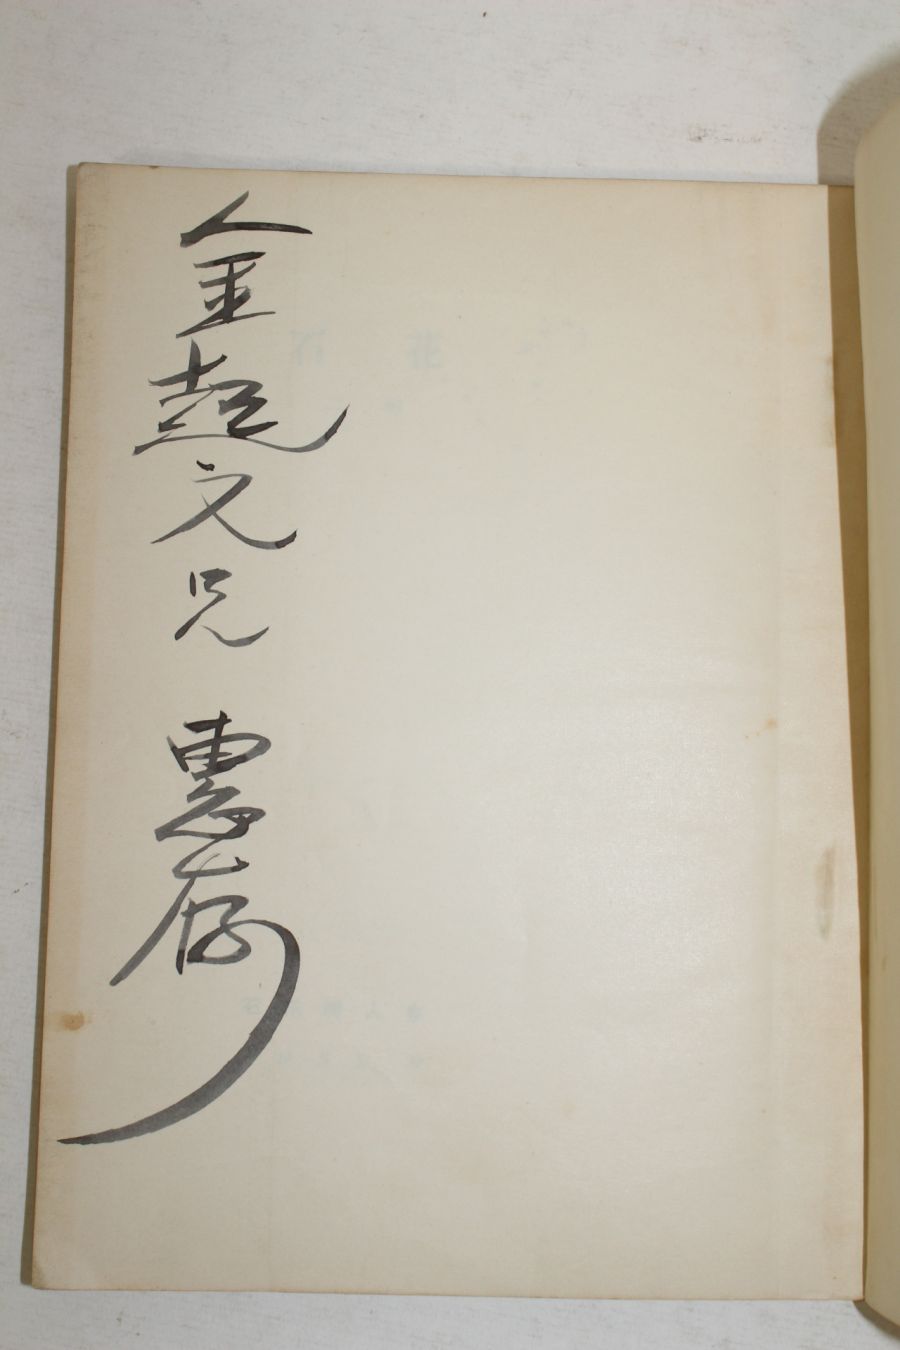 金超文兄 惠存